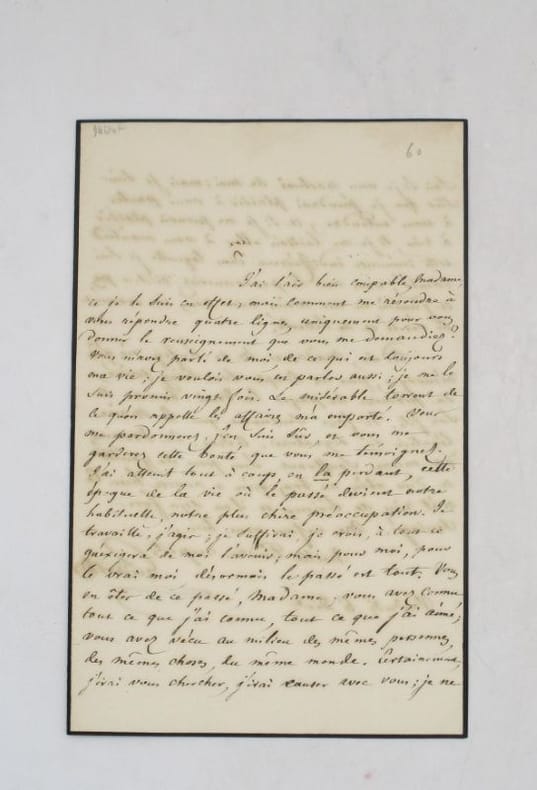 60
J'ai l'air bien coupable, Madame,
et je le suis en effet; mais comment me résoudre à
vous répondre quatre lignes, uniquement pour vous
donner le renseignement que vous me demandiez?
Vous m'avez parlé de moi, de ce qui est toujours
ma vie; je voulois vous en parler aussi; je me le
suis promis vingt fois. Le misérable torrent de
ce qu'on appelle les affaires m'a emporté. Vous
me pardonnerez, j'en suis sûr, et vous me
garderez cette bonté que vous me témoignez.
J'ai atteint tout à coup, en la perdant, cette
époque de la vie où le passé devient notre
habituelle, notre plus chère préoccupation. Je
travaille, j'agis; je suffirai, je crois, à tout ce
qu'exigera de moi l'avenir; mais pour moi, pour
le vrai moi, désormais le passé est tout. Vous
en êtes de ce passé, Madame; vous avez connu
tout ce que j'ai connu, tout ce que j'ai aimé;
vous avez vécu au milieu des mêmes personnes,
des mêmes choses, du même monde. Certainement,
j'irai vous chercher, j'irai causer avec vous; je ne